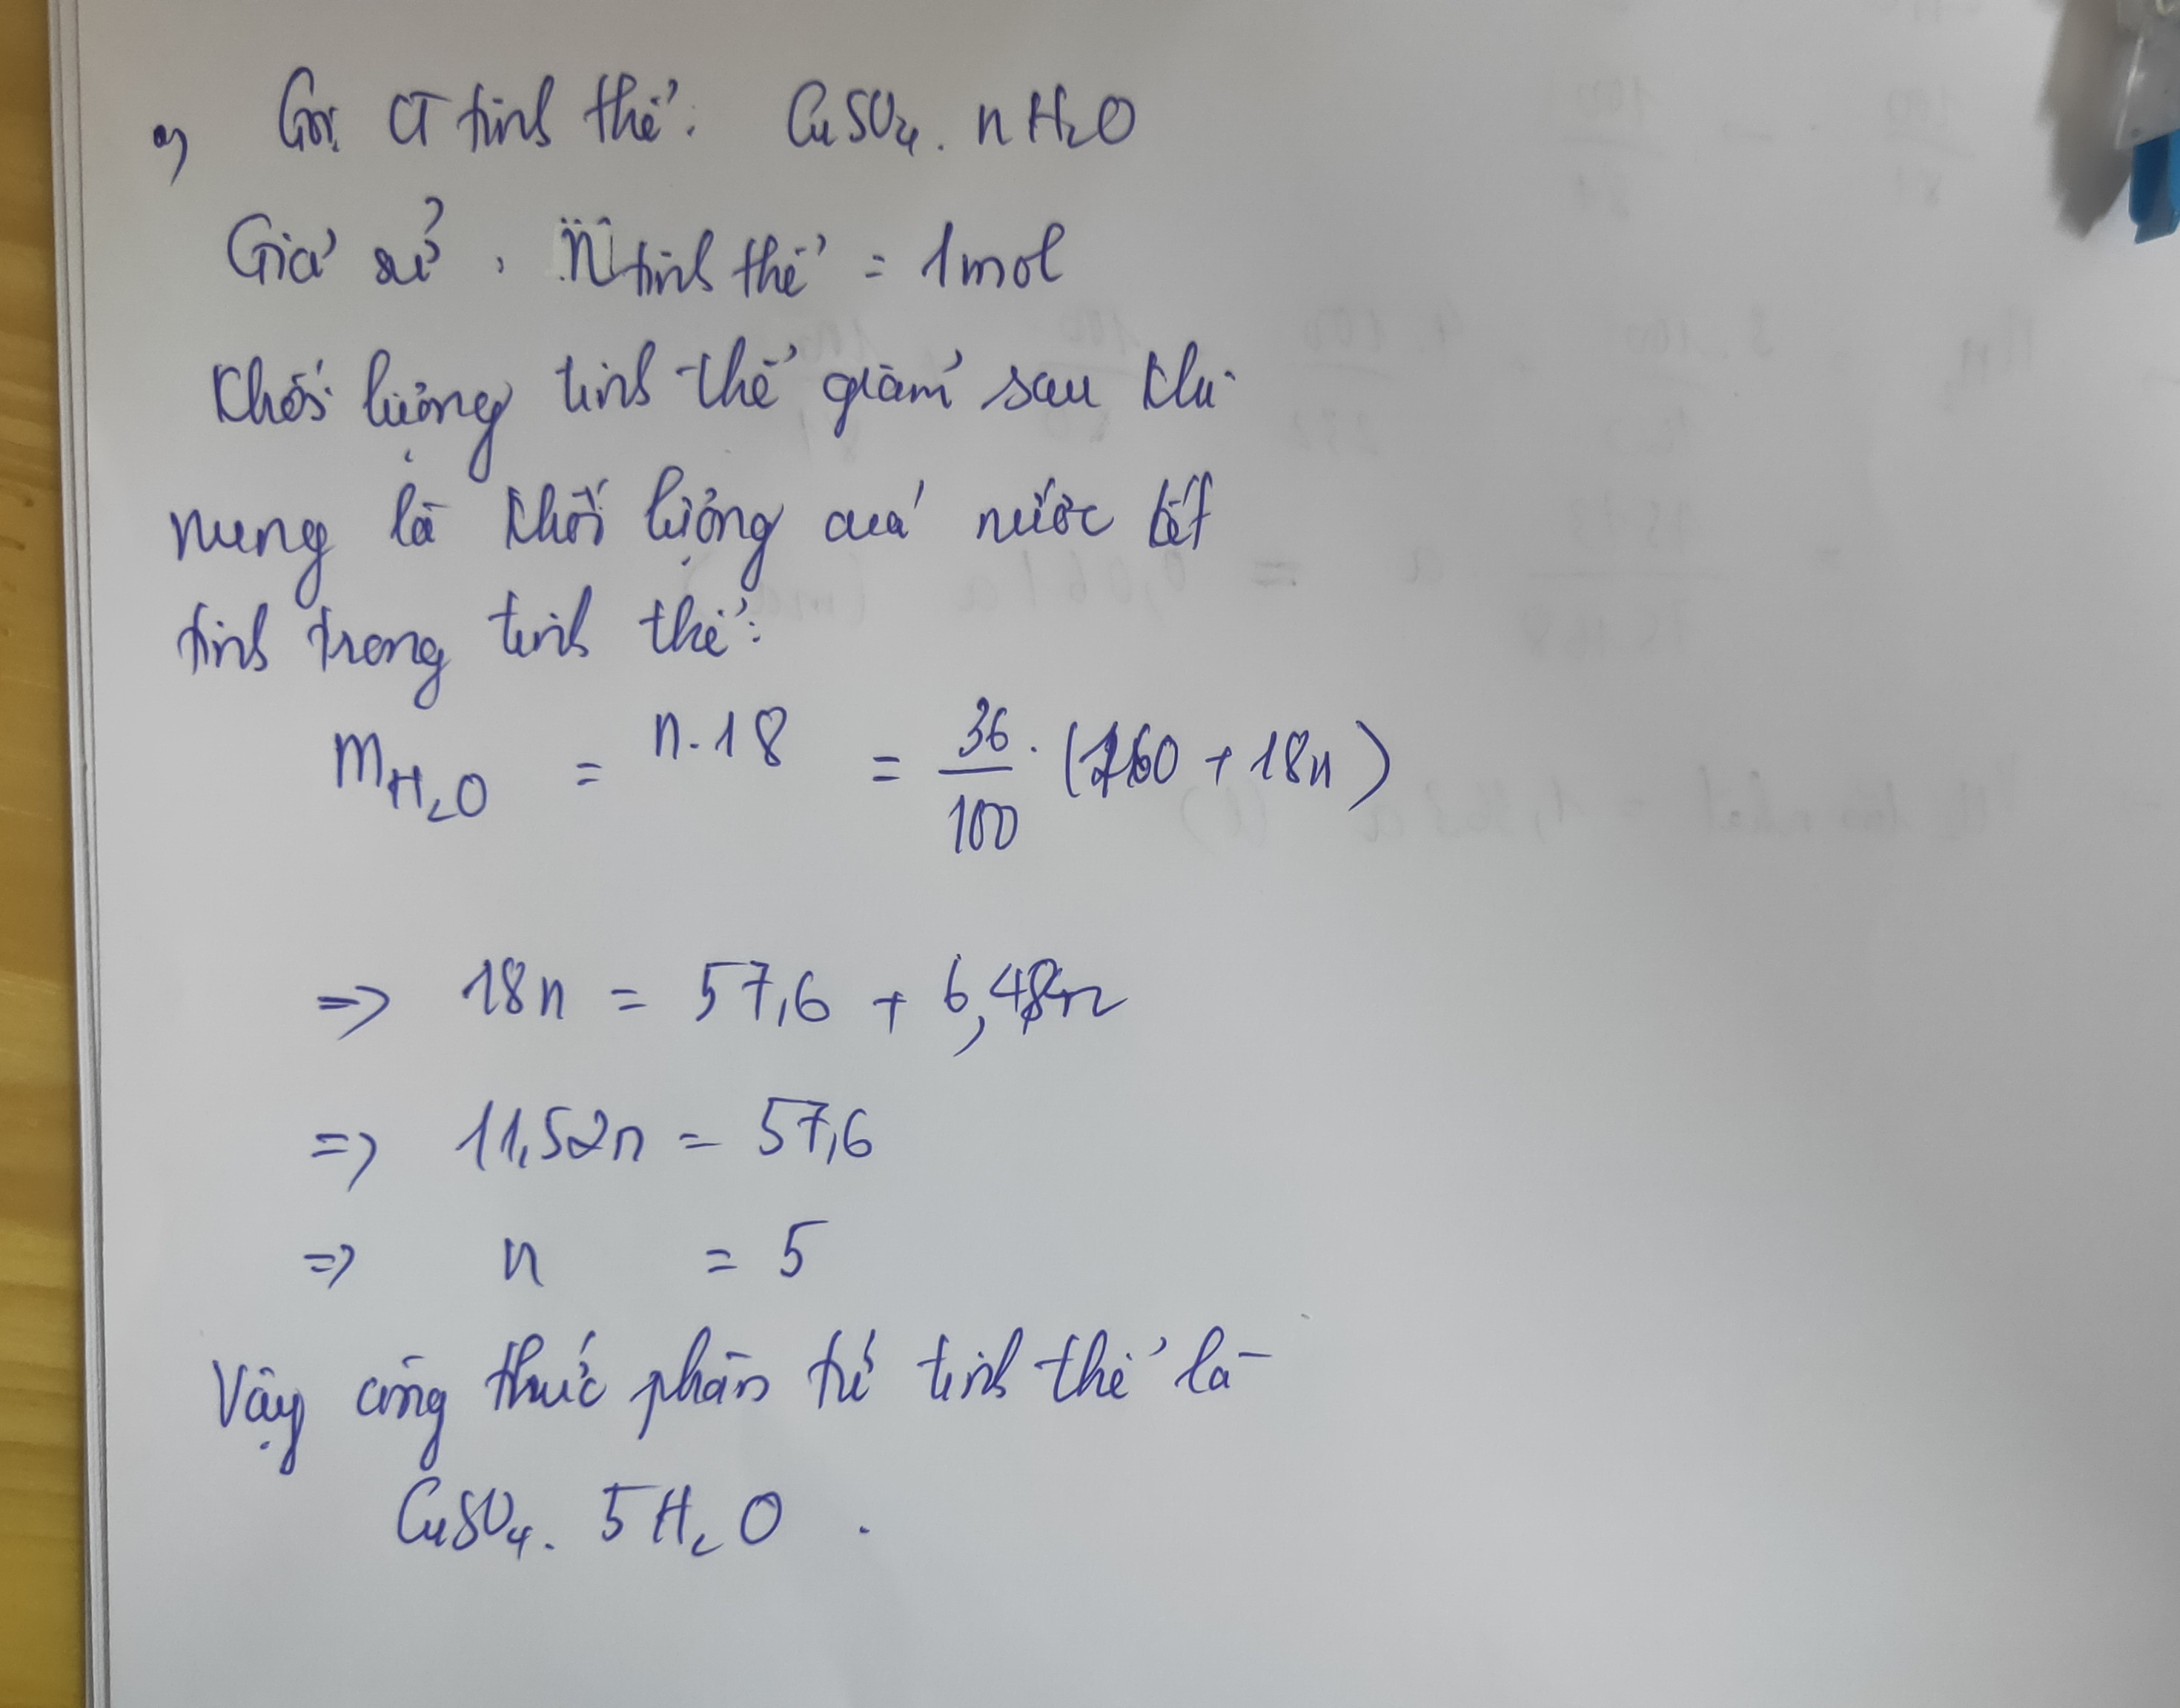 a) Gọi CT tinh thể: CuSO4. nH2O
Giả sử, n tinh thể = 1mol
Khối lượng tinh thể giảm sau khi
nung là khối lượng của nước kết
tinh trong tinh thể:
mH2O = n.18 = 36/100 . (160 + 18n)
=> 18n = 57,6 + 6,48n
=> 11,52n = 57,6
=> n = 5
Vậy công thức phân tử tinh thể là
CuSO4. 5H2O .